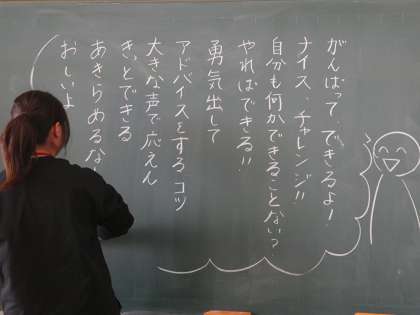 がんばって、できるよ!
ナイス、チャレンジ!!
自分も何かできることない?
やればできる!!
勇気出して
アドバイスをするコツ
大きな声で応えん
きっとできる
あきらめるな
おしいよ